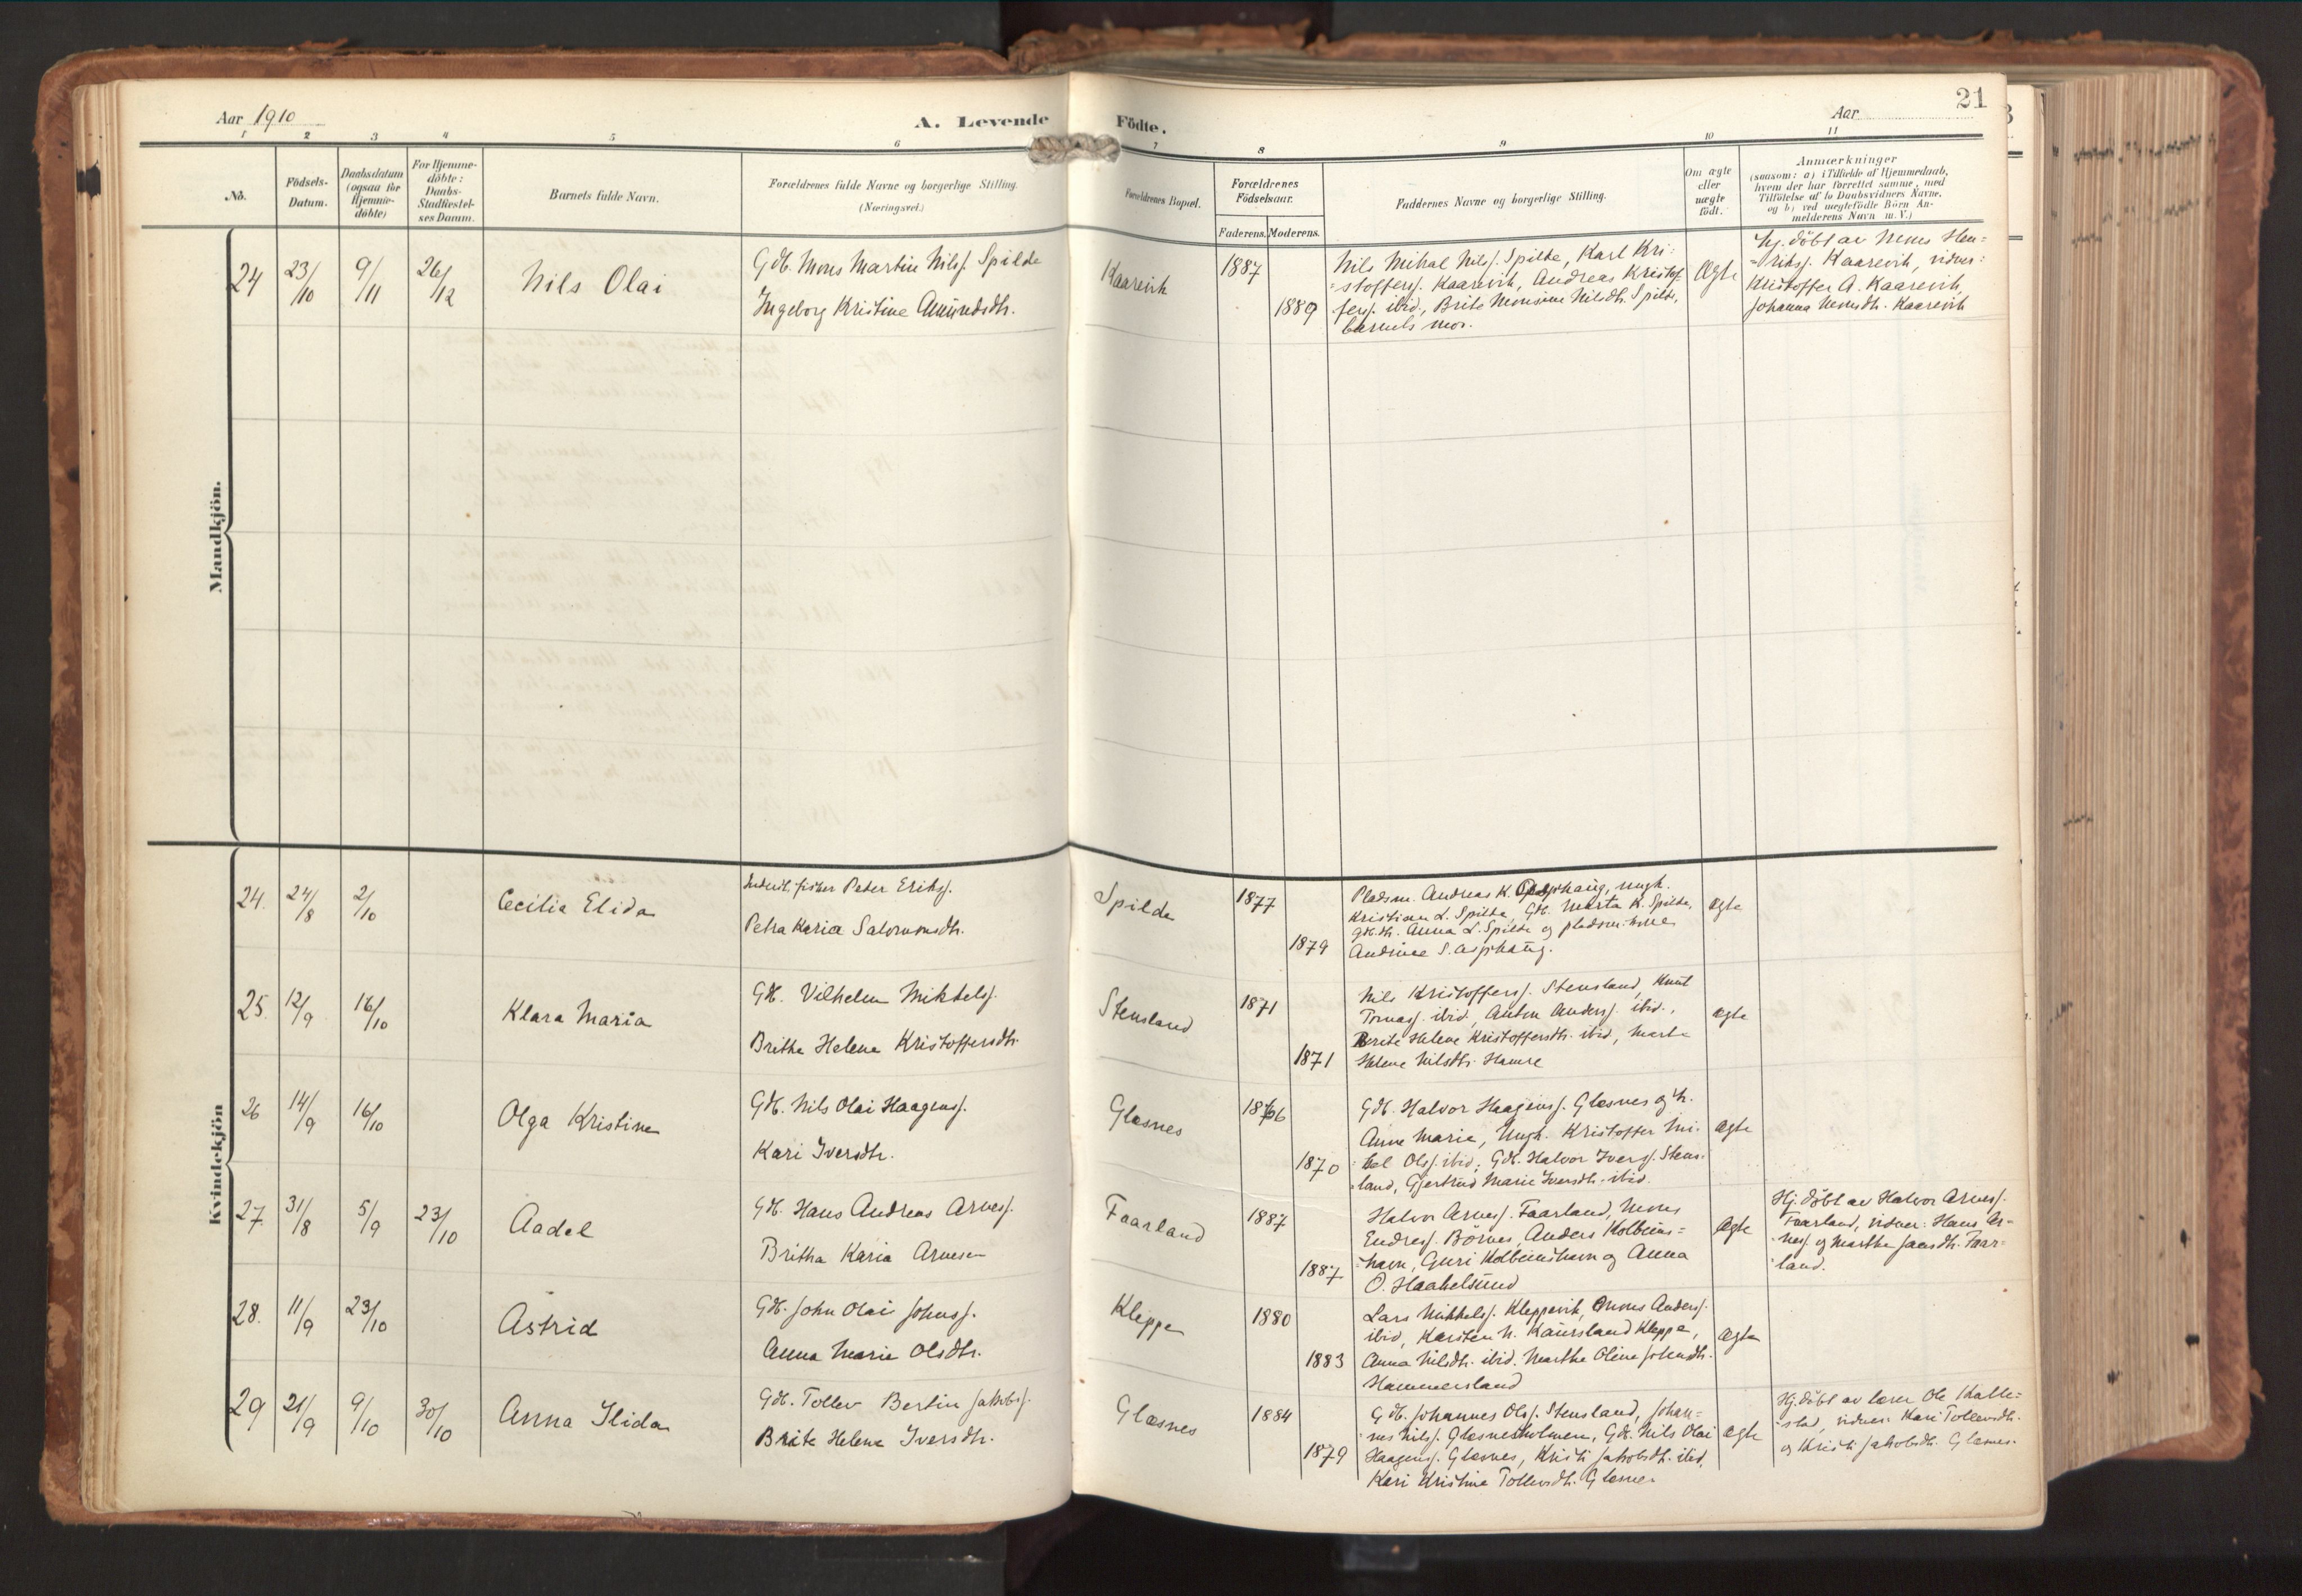 Aar 1910
A. Levende
Födte.
Aar
21
1 2 3 4 5 6 7 8 9 10 11
No.
Födsels-
Datum.
Daabsdatum
(ogsaa för
Hjemme-
döbte)
For Hjemme-
döbte:
Daabs-
Stadfæstel-
ses Datum.
Barnets fulde Navn.
Forældrenes fulde Navne og borgerlige Stilling.
(Næringsvei.)
Forældrenes Bopæl.
Forældrenes
Födselsaar.
Faderens. Moderens.
Faddernes Navne og borgerlige Stilling.
Om ægte
eller
uægte
födt.
Anmærkninger
(saasom: a) i Tilfælde af Hjemmedaab,
hvem der har forrettet samme, med
Tilföielse af to Daabsvidners Navne,
og b) ved uægtefödte Börn An-
melderens Navn m. V.)
Mandkjön.
24
23/10
9/11
26/12
Nils Olai
Gdb. Mons Martin Nilss. Spilde
Ingeborg Kristine Amundsdtr.
Kaarevik
1887
1889
Nils Mikal Nilss. Spilde, Karl Kri=
=stoffers. Kaarevik, Andreas Kristof=
fers. ibid., Brite Monsine Nilsdtr. Spilde,
barnets mor.
Ægte
Hj. döbt av Mons Hen=
=rikss. Kaarevik, vidner:
Kristoffer A. Kaarevik,
Johanna Monsdtr. Kaarevik
Kvindekjön
24.
24/8
2/10
Cecilia Elida
fisker Peter Eriks.
Petra Karia Salomonsdtr.
Spilde
1877
1879
Pladsm. Andreas K. Asphaug, ungk.
Kristian L. Spilde, Gk. Marta K. Spilde,
gdb.dtr. Anna L. Spilde og pladsm. kone
Andrine S. Asphaug.
ægte
25.
12/9
16/10
Klara Maria
Gdb. Vilhelm Mikkels.
Brithe Helene Kristoffersdtr.
Stensland
1871
1871
Nils Kristoffers. Stensland, Knut
Tomass. ibid., Anton Anders. ibid.,
Brite Helene Kristoffersdtr. ibid., Marta
Helene Nilsdtr. Hamre
ægte
26
14/9
16/10
Olga Kristine
Gdb. Nils Olai Haagens.
Kari Iversdtr.
Glæsnes
1866
1870
Gdb. Halvor Haagens. Glæsnes og h.
Anne Marie, Ungk. Kristoffer Mi=
=kal Ols. ibid., Gdb. Halvor Ivers. Stens=
land, Gjertrud Marie Iversdtr. ibid.
ægte
27
31/8
5/9
23/10
Aadel
Gdb. Hans Andreas Arnes.
Britha Karia Arnesen
Faarland
1887
1887
Halvor Arnes. Faarland, Mons
Endres. Börnes, Anders Kolbeins=
=havn, Guri Kolbeinshavn og Anna
O. Haakelsund
ægte
Hj. döbt av Halvor Arnes.
Faarland, vidner: Hans Ar=
=nes. og Marthe Jansdtr. Faar=
land.
28.
11/9
23/10
Astrid
Gdb. John Olai Johns.
Anna Marie Olsdtr.
Kleppe
1880
1883
Lars Mikkels. Kleppevik, Mons Anders.
ibid, Karsten N. Kaursland Kleppe,
Anna Nilsdtr. ibid. Marthe Oline Johnsdtr.
Hammersland
ægte
29
21/9
9/10
30/10
Anna Ilida
Gdb. Tollev Bertin Jakobs.
Brite Helene Iversdtr.
Glæsnes
1884
1879
Gdb. Johannes Ols. Stensland, Johan=
=nes Nils. Glæsnesholmen, Gdb. Nils Olai
Haagens. Glæsnes, Kristi Jakobsdtr. ibid.
Kari Kristine Tollevsdtr. Glæsnes
ægte
Hj. döbt av lærer Ole Kalle=
=stad, vidner: Kari Tollevsdtr.
og Kristi Jakobsdtr. Glæsnes.